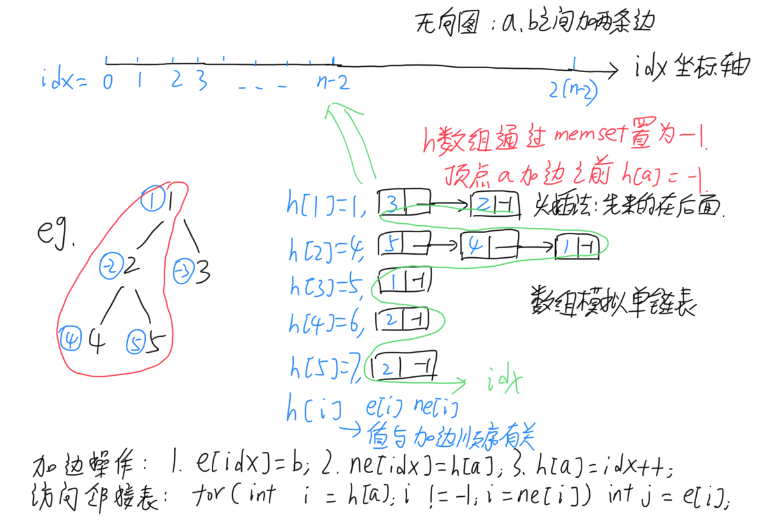 无向图：a,b之间加两条边
idx= 0 1 2 3 - - - n-2 2(n-2) idx坐标轴
h数组通过memset置为-1.
顶点a加边之前h[a]=-1.
eg.
① 1
-2 2 -3 3
④ 4 ⑤ 5
h[1]=1, 3 2 -1 头插法:先来的在后面.
h[2]=4, 5 4 1 -1
h[3]=5, 1 -1
h[4]=6, 2 -1
h[5]=7, 2 -1
数组模拟单链表
idx
h[i] e[i] ne[i]
→值与加边顺序有关
加边操作: 1. e[idx]=b; 2. ne[idx]=h[a]; 3. h[a]=idx++;
访问邻接表: for(int i=h[a]; i!=-1; i=ne[i]) int j=e[i];